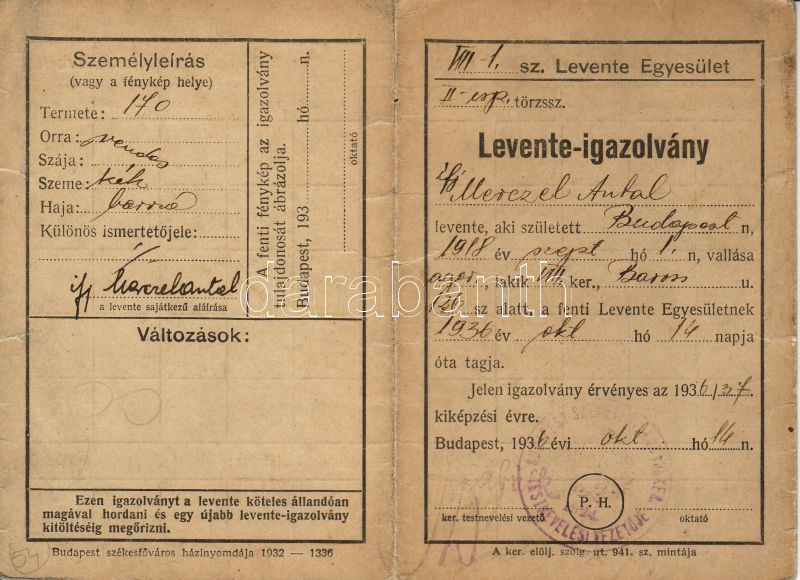 Személyleírás
(vagy a fénykép helye)
Termete: 170
Orra: rendes
Szája:
Szeme: kék
Haja: barna
Különös ismertetőjele:
ifj Merczel Antal
a levente sajátkezű aláírása
A fenti fénykép az igazolvány
tulajdonosát ábrázolja.
Budapest, 193 hó n.
oktató
Változások:
Ezen igazolványt a levente köteles állandóan
magával hordani és egy újabb levente-igazolvány
kitöltéséig megőrizni.
54
Budapest székesfőváros házinyomdája 1932 — 1336
VIII-1. sz. Levente Egyesület
II. törzssz.
Levente-igazolvány
ifj Merczel Antal
levente, aki született Budapest n,
1918 év szept hó 1. n, vallása
, lakik VIII. ker., Baross u.
120 sz alatt, a fenti Levente Egyesületnek
1936 év okt hó 14 napja
óta tagja.
Jelen igazolvány érvényes az 1936/37
kiképzési évre.
Budapest, 1936 évi okt hó 14 n.
P. H.
ker. testnevelési vezető
oktató
TESTNEVELÉSI VEZETŐJE
A ker. elölj. szolg. ut. 941. sz. mintája
darabanth